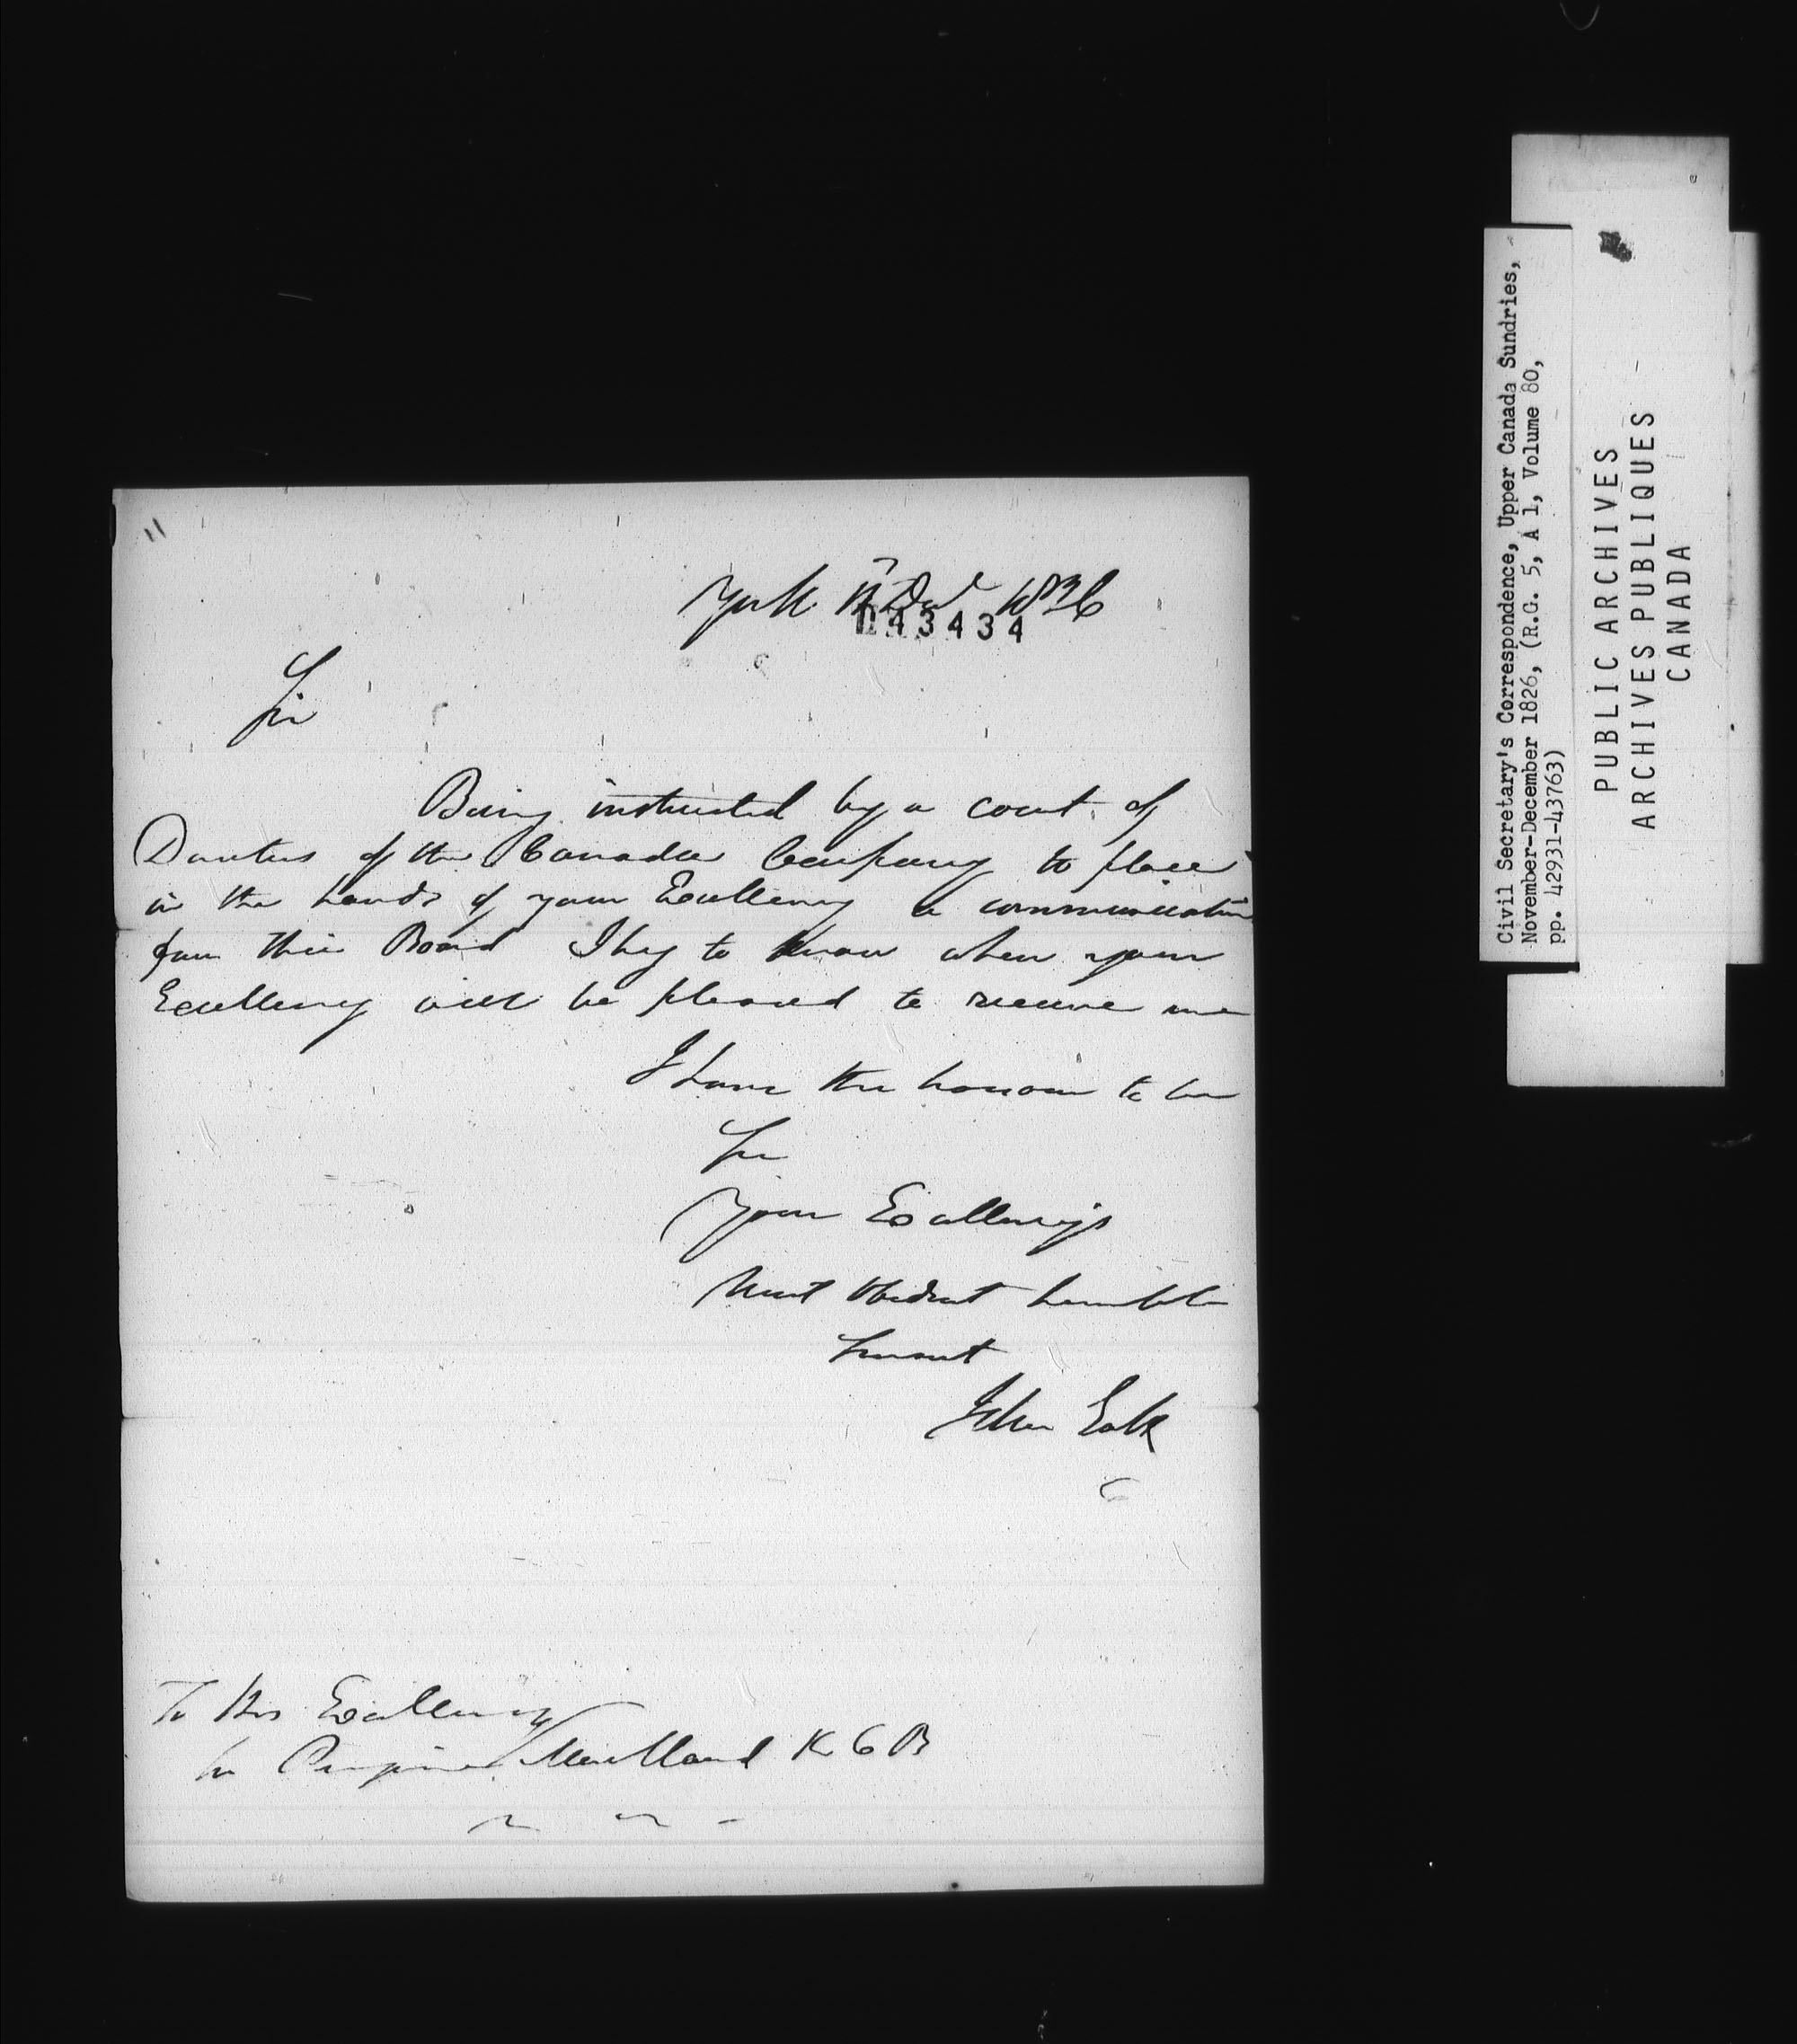 York 17 Decr 1826
043434
Sir
Being instructed by a court of
Directors of the Canada Company to place
in the hands of your Excellency a communication
from their Board I beg to know when your
Excellency will be pleased to receive me
I have the honour to be
Sir
Your Excellency's
Most Obedient humble
Servant
John Galt
To His Excellency
Sir Peregrine Maitland K C B
Civil Secretary's Correspondence, Upper Canada Sundries,
November-December 1826, (R.G. 5, A 1, Volume 80,
pp. 42931-43763)
PUBLIC ARCHIVES
ARCHIVES PUBLIQUES
CANADA